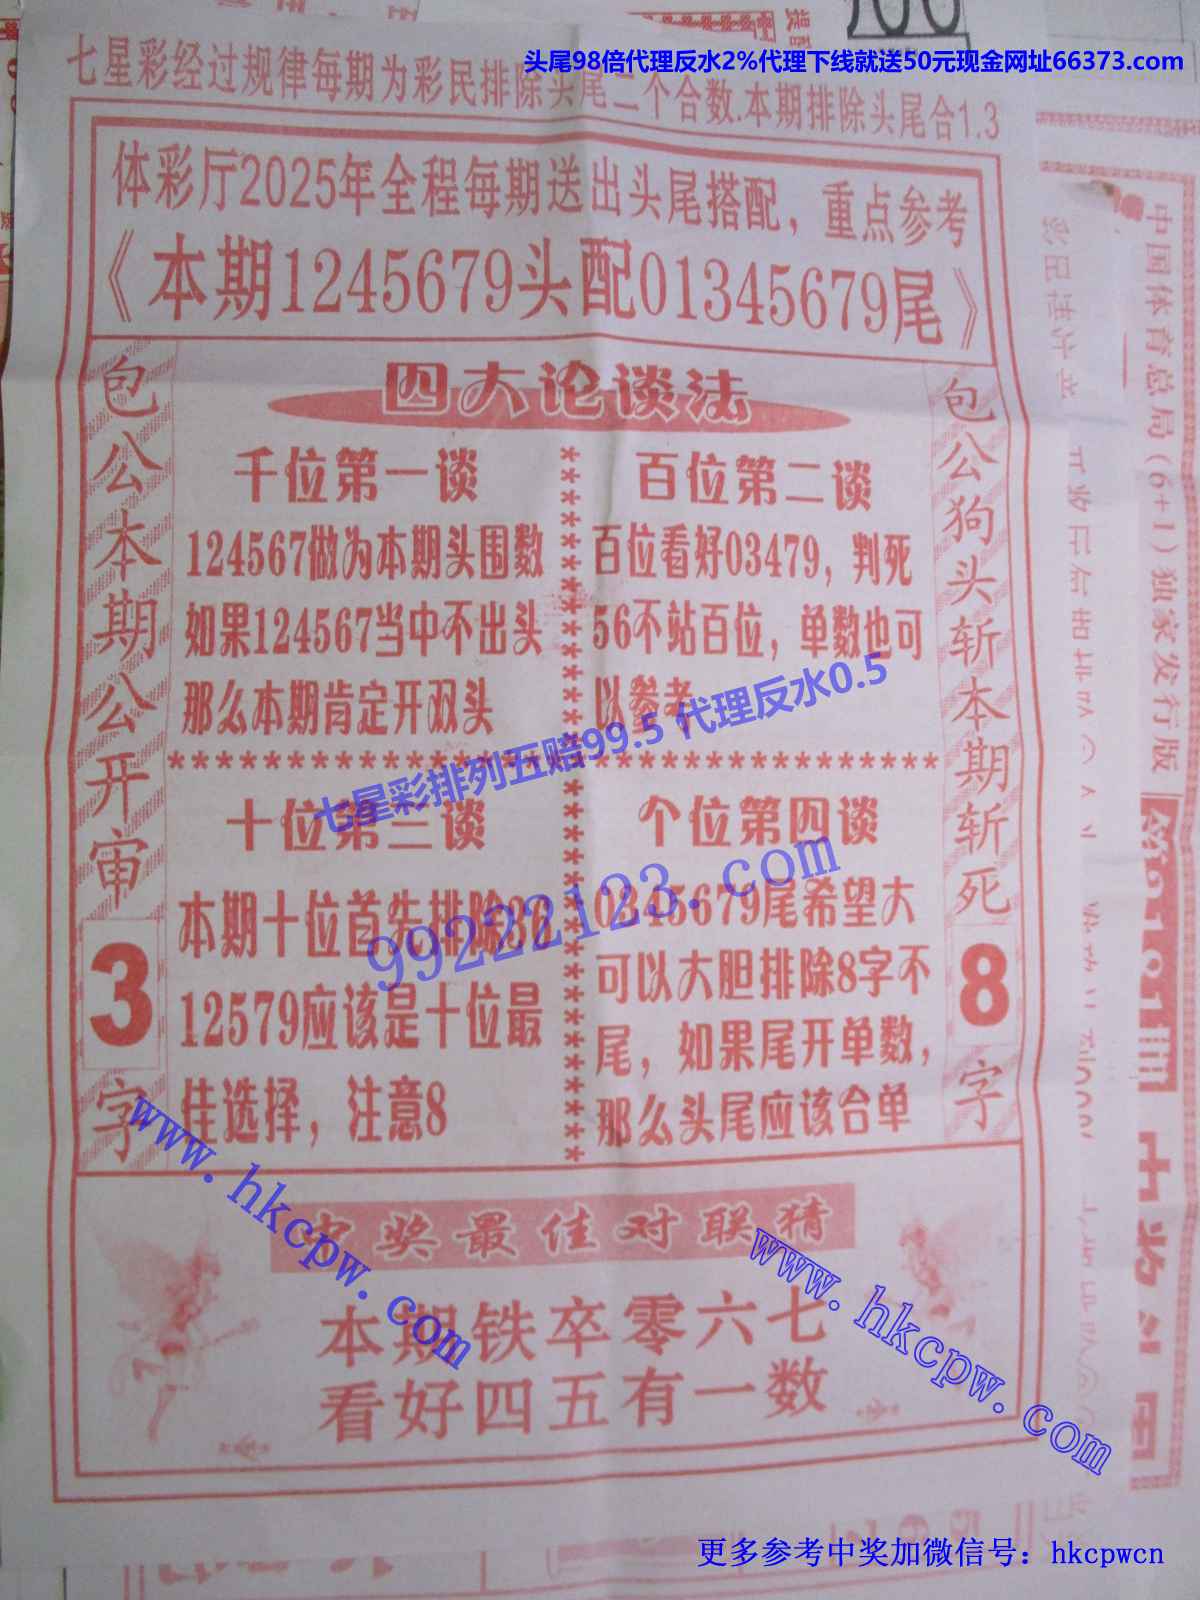 头尾98倍代理反水2%代理下线就送50元现金网址66373.com
七星彩经过规律每期为彩民排除头尾二个合数.本期排除头尾合1.3
体彩厅2025年全程每期送出头尾搭配，重点参考
《本期1245679头配01345679尾》
包公本期公开审3字
四大论谈法
千位第一谈
124567做为本期头围数
如果124567当中不出头
那么本期肯定开双头
百位第二谈
百位看好03479，判死
56不站百位，单数也可
以参考
****************************
七星彩排列五赔99.5 代理反水0.5
99222123.com
十位第三谈
本期十位首先排除
12579应该是十位最
佳选择，注意8
个位第四谈
01345679尾希望大
可以大胆排除8字不
尾，如果尾开单数，
那么头尾应该合单
包公狗头斩本期斩死8字
www.hkcpw.com
www.hkcpw.com
奖最佳对联猜
本期铁卒零六七
看好四五有一数
中国体育总局(6+1)独家发行版
更多参考中奖加微信号：hkcpwcn